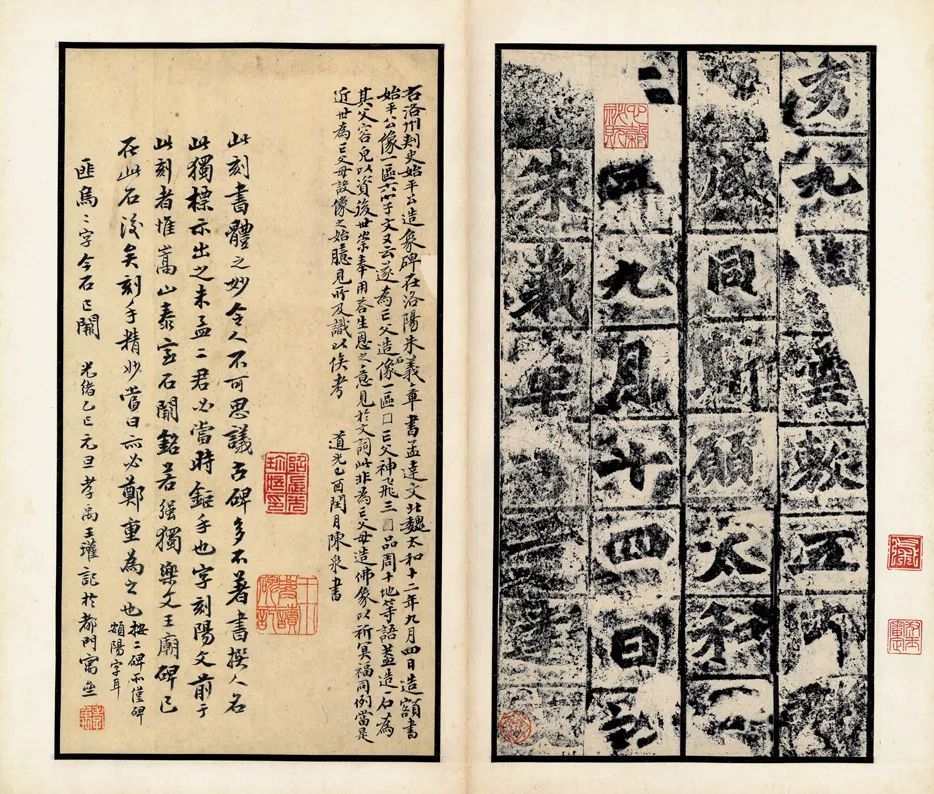 秀九雲敷五有群
咸同斯願太和廿
二年九月十四日訖
朱義章書孟達文
右洛州刺史始平公造象碑在洛陽朱義章書孟達文北魏太和十二年九月四日造額書
始平公像一區六小字文又云遂為亡父造石像一區□亡父神飛三□品周十地等語蓋造一石為
其父容皃以資後世崇奉用答生恩之意見於文詞此非為亡父母造佛像以祈冥福同例當是
近世為亡父母設像之始臆見所及識以俟考 道光乙酉閏月陳泉書
此刻書體之妙令人不可思議古碑多不著書撰人名
此獨標示出之朱孟二君必當時鉅手也字刻陽文前于
此刻者惟嵩山泰室石闕銘若強獨樂文王廟碑已
在此石後矣刻手精妙當日亦必鄭重為之也
按二碑不僅碑
額陽字耳
匪烏二字今石已闕 光緒乙巳元旦孝禹王瓘記於都門寓